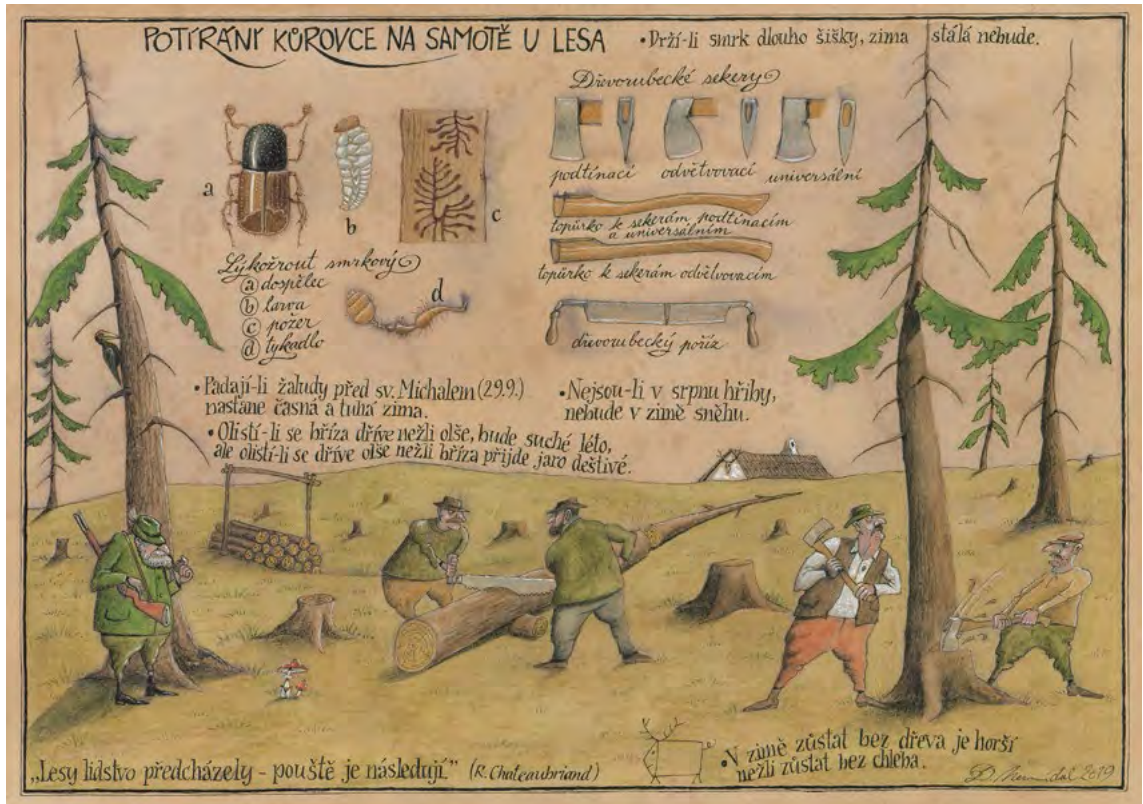 POTÍRÁNÍ KŮROVCE NA SAMOTĚ U LESA
• Drží-li smrk dlouho šišky, zima stálá nebude.
Dřevorubecké sekery
podtínací odvětvovací universální
topůrko k sekerám podtínacím
a universálním
topůrko k sekerám odvětvovacím
dřevorubecký poříz
a
b
c
d
Lýkožrout smrkový
a dospělec
b larva
c požer
d tykadlo
• Padají-li žaludy před sv. Michalem (29.9.)
nastane časná a tuhá zima.
• Olistí-li se bříza dříve nežli olše, bude suché léto,
ale olistí-li se dříve olše nežli bříza přijde jaro deštivé.
• Nejsou-li v srpnu hřiby,
nebude v zimě sněhu.
„Lesy lidstvo předcházely - pouště je následují." (R. Chateaubriand)
• V zimě zůstat bez dřeva je horší
nežli zůstat bez chleba.
2019